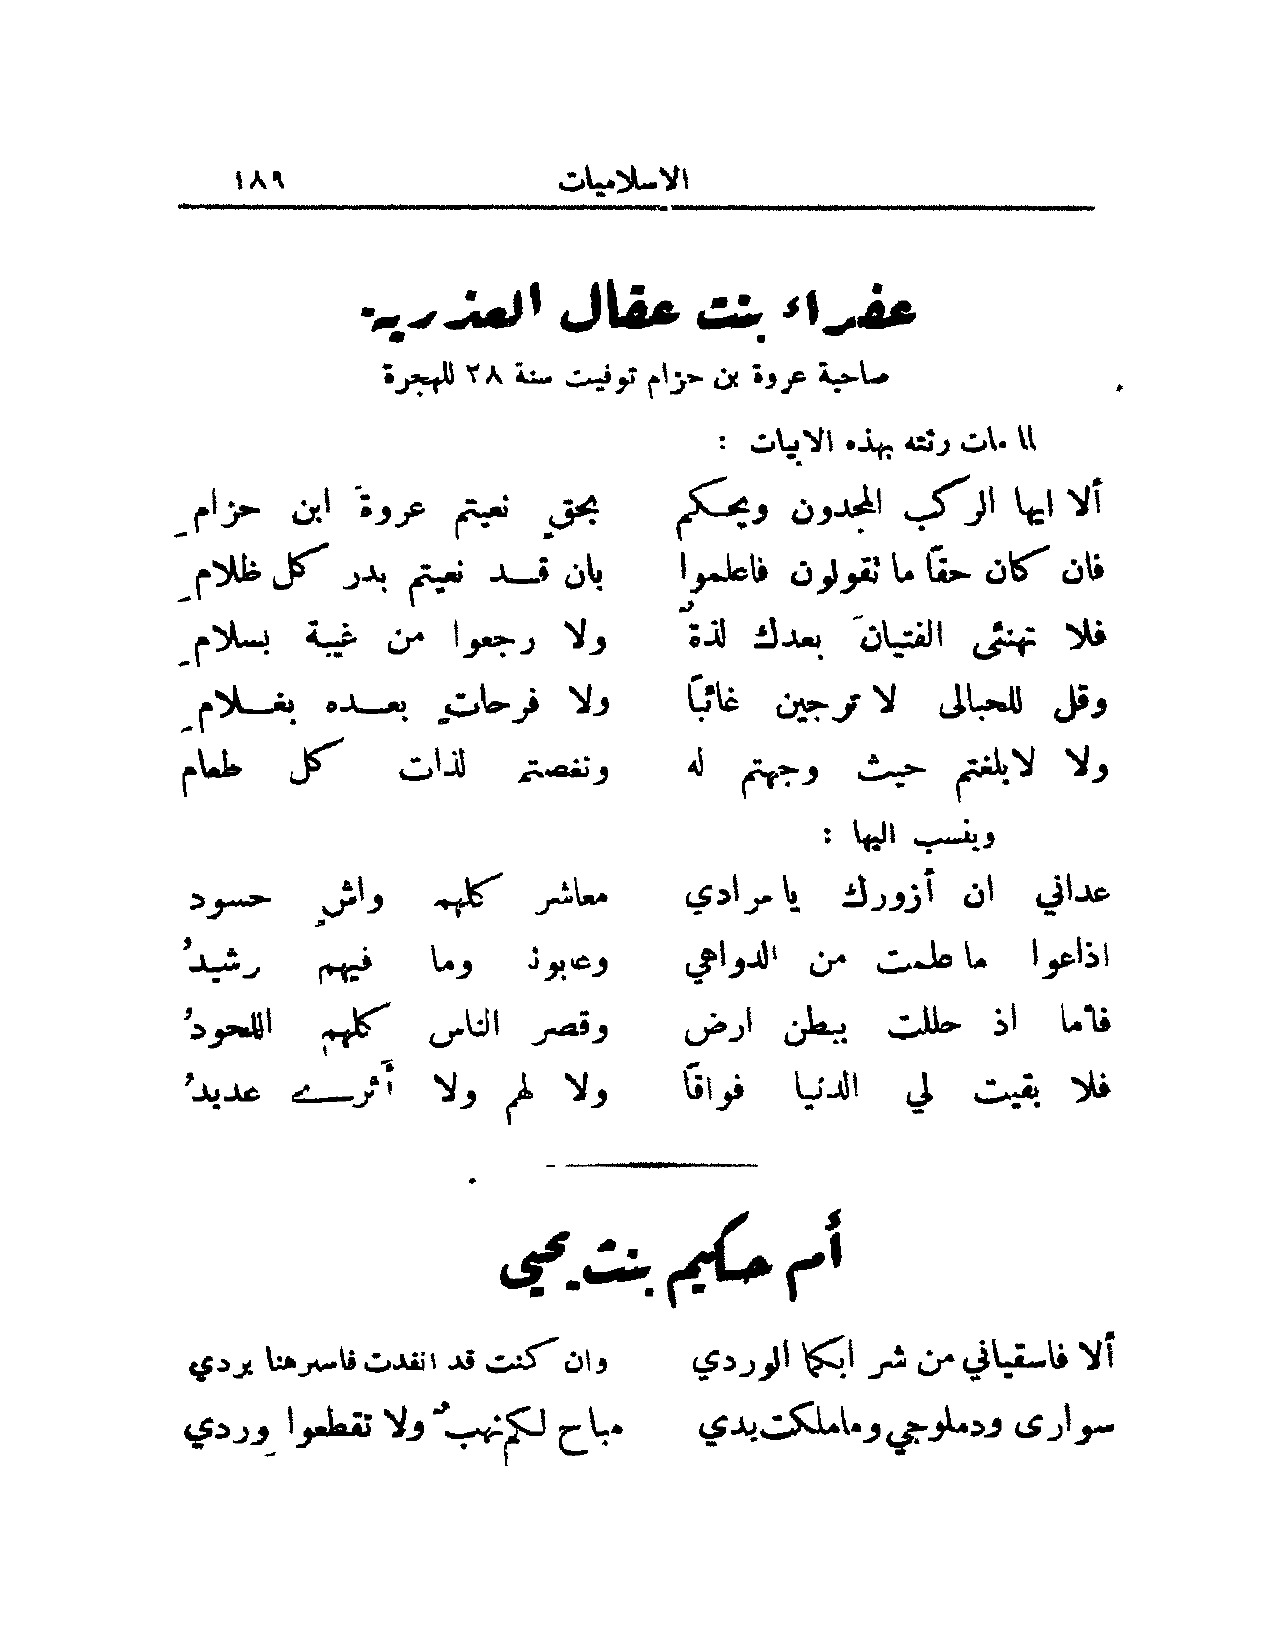 الاسلاميات ١٨٩
عفراء بنت عقال العذرية
صاحبة عروة بن حزام توفيت سنة ٢٨ للهجرة
لما مات رثته بهذه الابيات :
ألا ايها الركب المجدون ويحكم بحقٍ نعيتم عروةَ ابن حزامِ
فان كان حقًا ما تقولون فاعلموا بان قد نعيتم بدر كل ظلامِ
فلا تهنئى الفتيانَ بعدك لذةٌ ولا رجعوا من غيبة بسلامِ
وقل للحبالى لا ترجين غائبًا ولا فرحاتٍ بعده بغلامِ
ولا لابلغتم حيث وجهتم له ونغصتم لذات كل طعام
وينسب اليها :
عداني ان أزورك يا مرادي معاشر كلهم واشٍ حسود
اذاعوا ما علمت من الدواهي وعابونا وما فيهم رشيدُ
فاما اذ حللت ببطن ارض وقصر الناس كلهم اللحودُ
فلا بقيت لي الدنيا فواقًا ولا لهم ولا أثرى عديدُ
أم حكيم بنت يحيى
ألا فاسقياني من شرابكما الوردي وان كنت قد انفدت فاسرهنا بردي
سوارى ودملوجي وماملكت يدي مباح لكم نهبٌ ولا تقطعوا وِردي